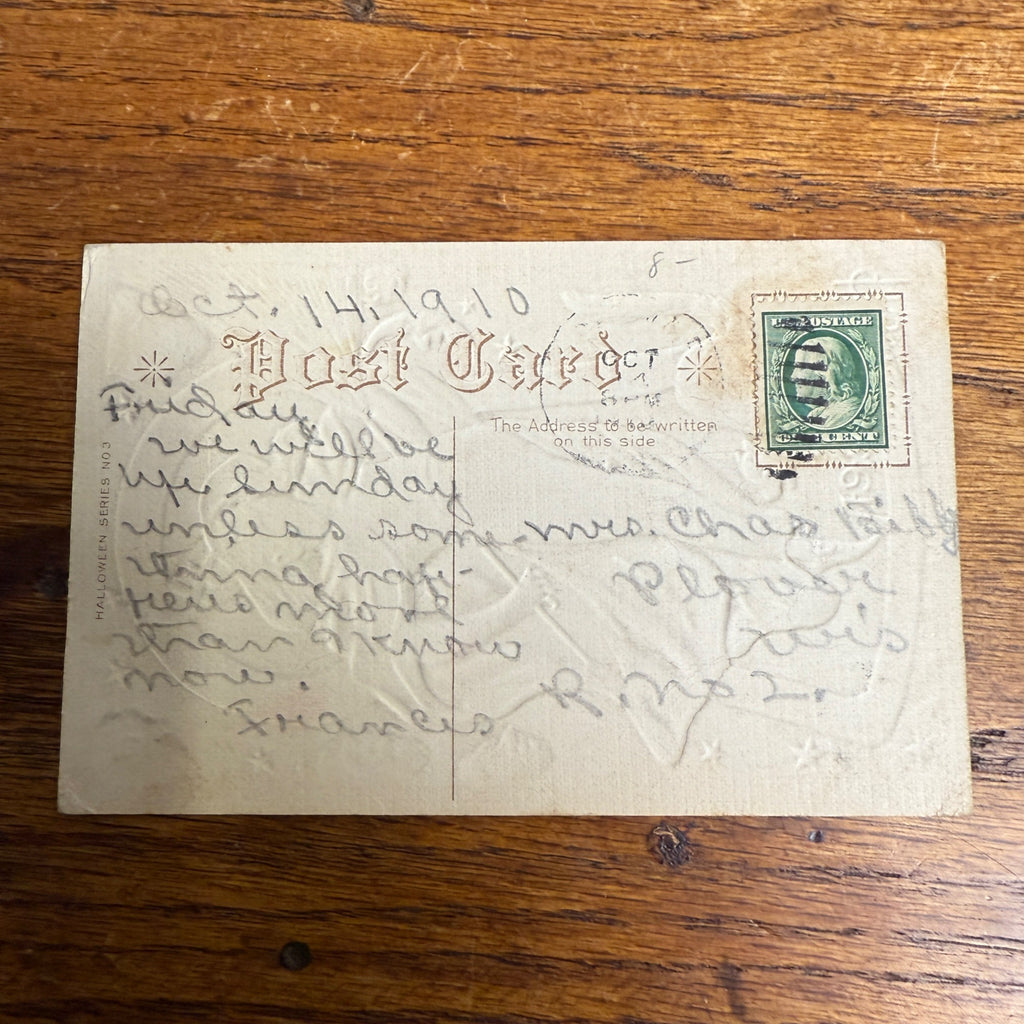 8-
Oct. 14, 1910
Post Card
OCT
The Address to be written
on this side
U.S. POSTAGE
CENT
HALLOWEEN SERIES NO 3
Friday
we will be
up Sunday
unless some-
thing hap-
pens more
than I know
now.
Frances
Mrs. Chas
Plover
Wis
R. No 2.